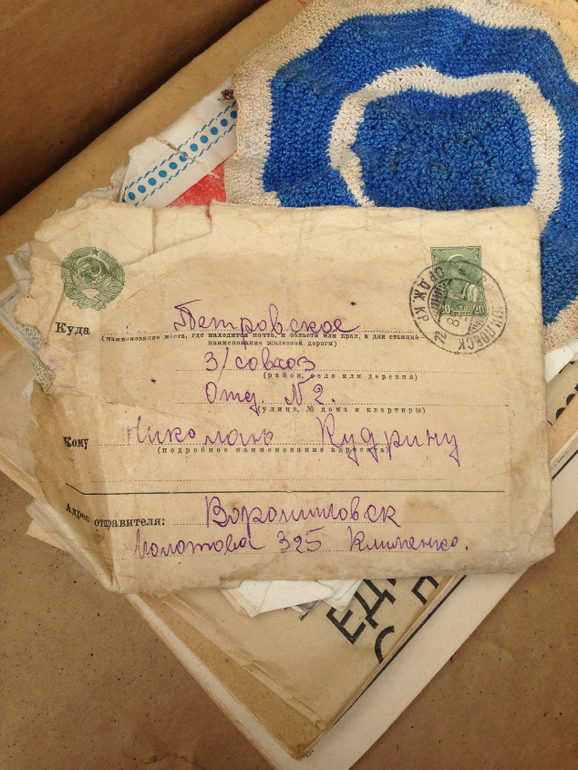 Куда Петровское
(наименование места, где находится почта, и области или края, а для станций
наименование железной дороги)
З/совхоз
(район, село или деревня)
Отд. №2.
(улица, № дома и квартиры)
Кому Николаю Кудрину
(подробное наименование адресата)
Адрес отправителя: Ворошиловск
Молотова 325 Клименко.